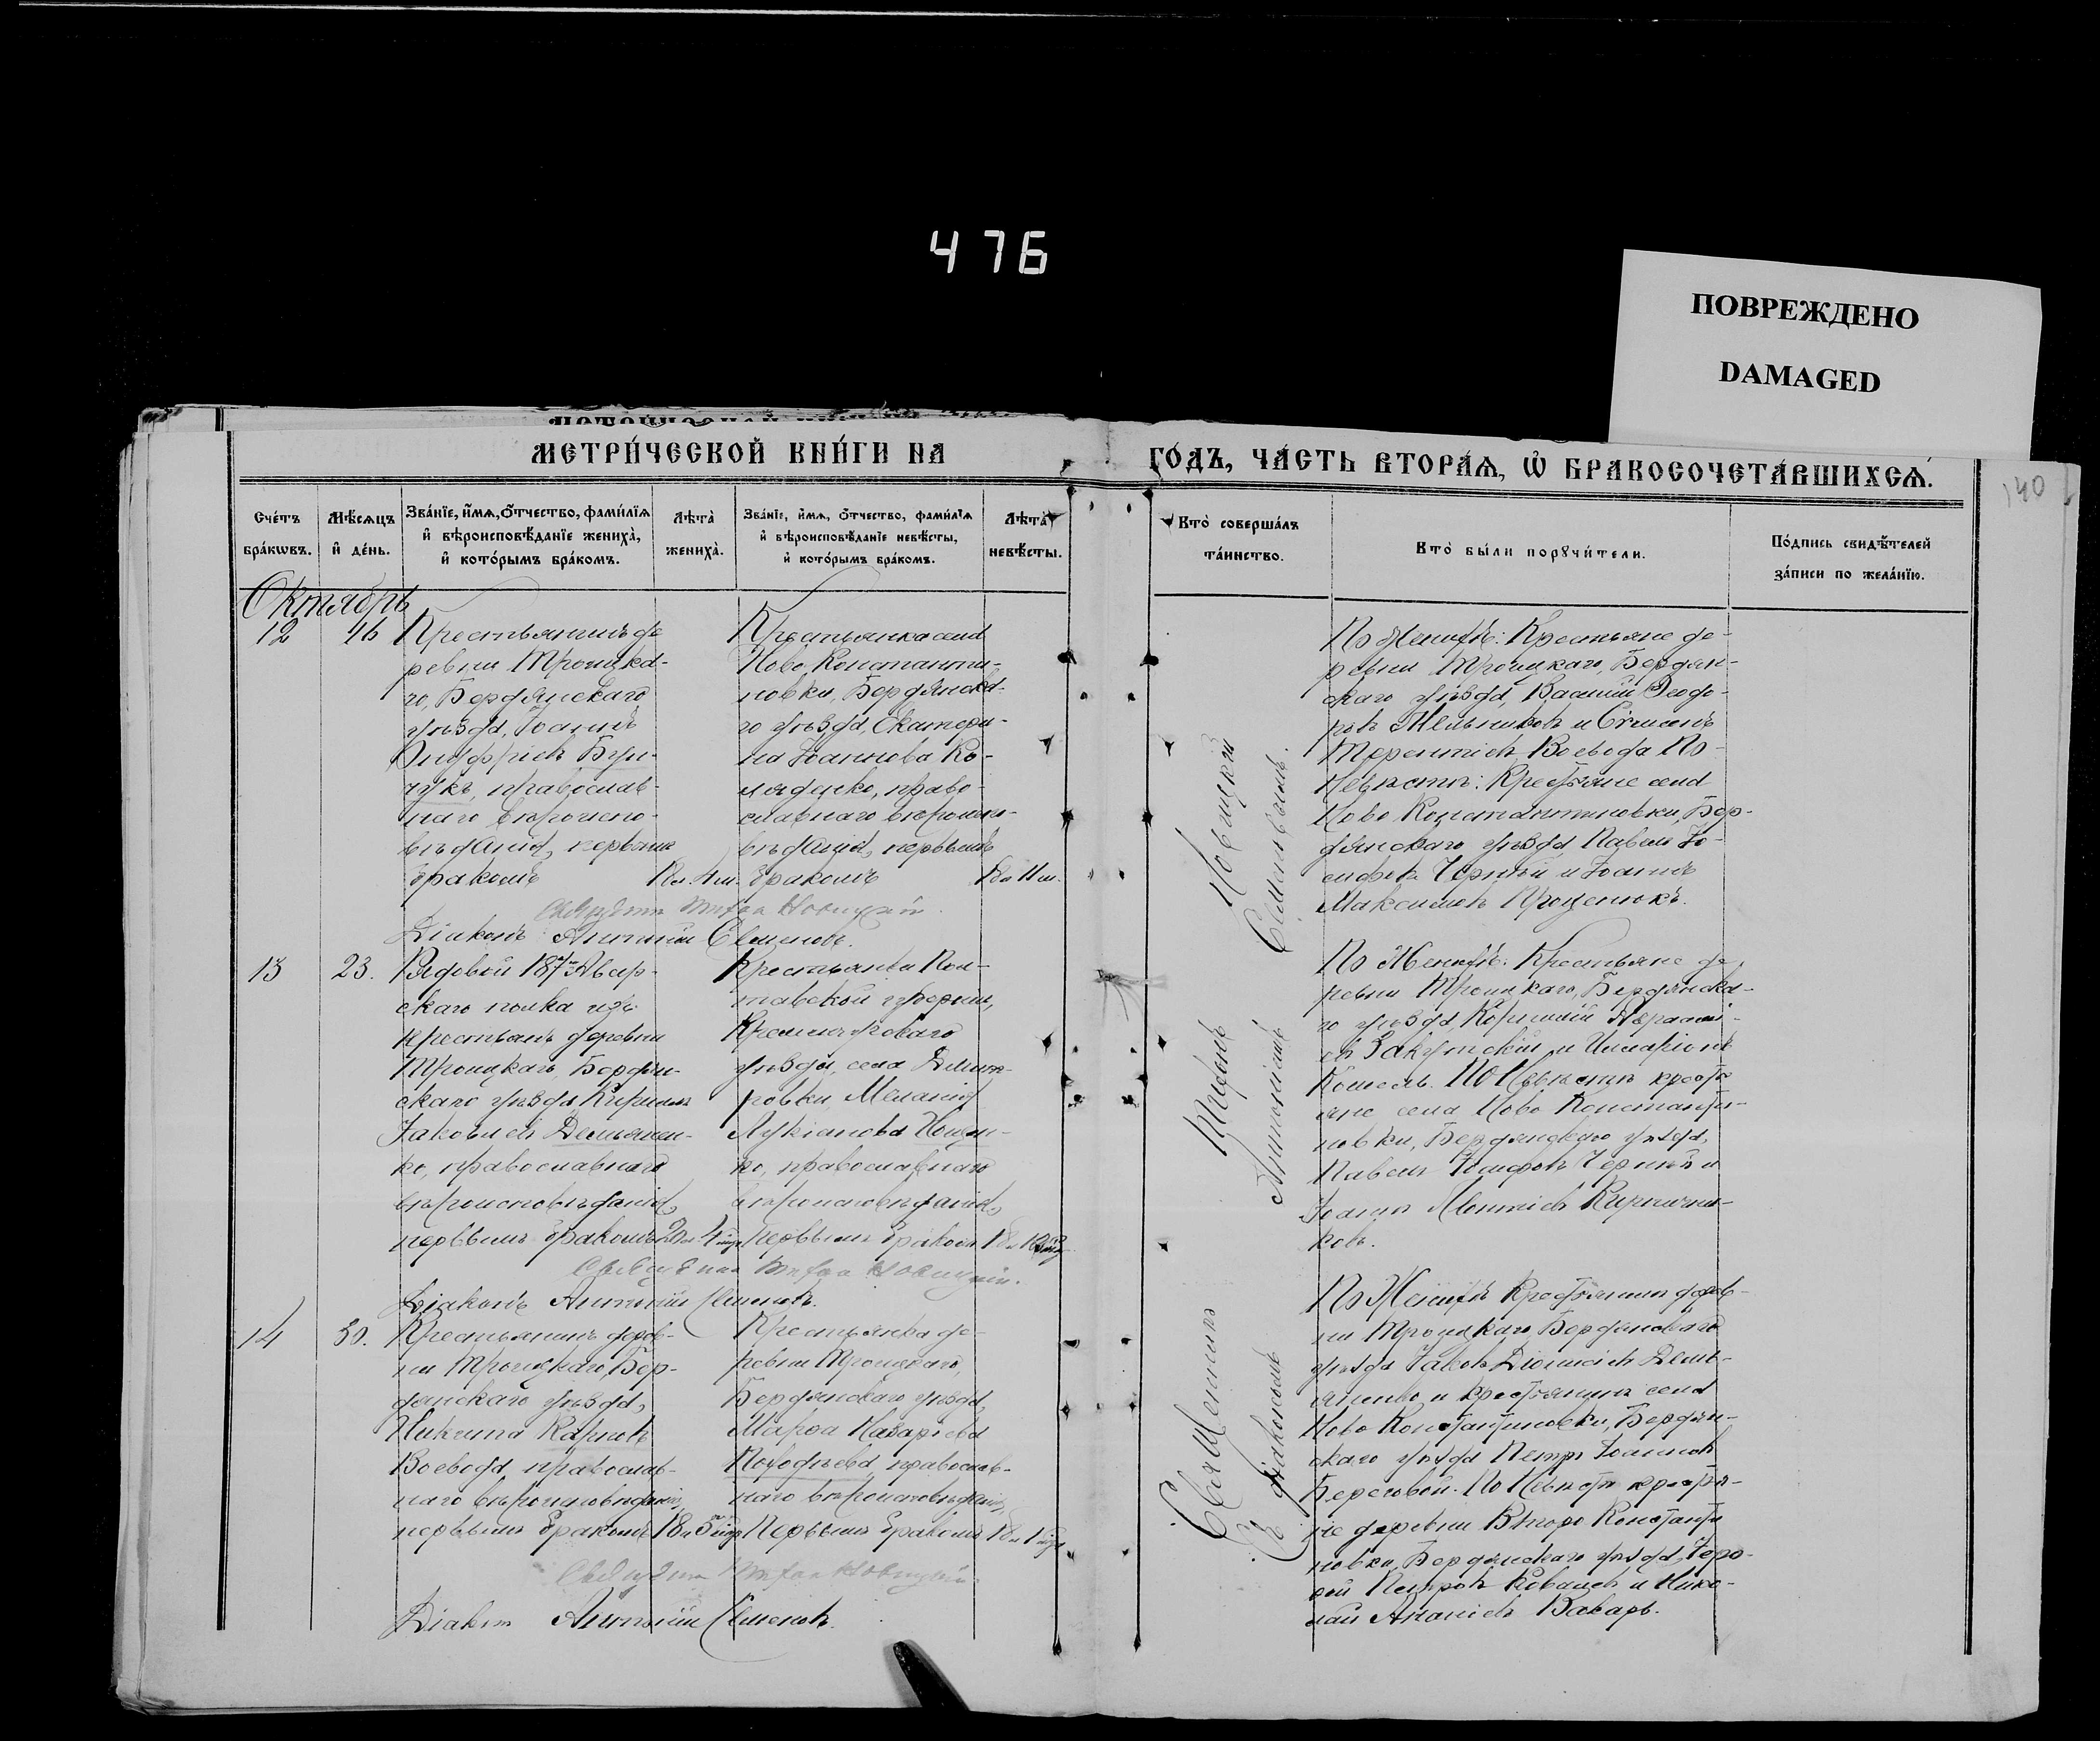 476
ПОВРЕЖДЕНО
DAMAGED
140
МЕТРИ́ЧЕСКОЙ КНИ́ГИ НА ГО́ДЪ, ЧА́СТЬ ВТОРА́Ѧ, Ѡ҆ БРАКОСОЧЕТА́ВШИХСѦ.
Сче́тъ бра́кѡвъ.
Мѣ́сѧцъ и҆ де́нь.
Зва́нїе, и҆́мѧ, ѻ҆́тчество, фами́лїѧ и҆ вѣроисповѣ́данїе жениха̀, и҆ кото́рымъ бра́комъ.
Лѣта̀ жениха̀.
Зва́нїе, и҆́мѧ, ѻ҆́тчество, фами́лїѧ и҆ вѣроисповѣ́данїе невѣ́сты, и҆ кото́рымъ бра́комъ.
Лѣта̀ невѣ́сты.
Кто̀ соверша́лъ та́инство.
Кто̀ бы́ли порꙋчи́тели.
По́дпись свидѣ́телей за́писи по жела́нїю.
Октябрь
12
16
Крестьянинъ де
ревни Троицка-
го, Бердянскаго
уѣзда, Іоаннъ
Онуфріевъ Бун-
чукъ, православ-
наго вѣроиспо-
вѣданія, первымъ
бракомъ
Крестьянка села
Ново Константи-
новки, Бердянска-
го уѣзда, Екатери-
на Іоаннова Ко-
ляденко, право-
славнаго вѣроиспо-
вѣданія, первымъ
бракомъ
По Женихѣ: Крестьяне де-
ревни Троицкаго, Бердян-
скаго уѣзда, Василій Ѳеодо-
ровъ Мельниковъ и Сѵмеонъ
Терентіевъ Воевода По
Невѣстѣ: Крестьяне села
Ново Константиновки, Бер-
дянскаго уѣзда Павелъ Іо-
сифовъ Черный и Іоаннъ
Максимовъ Проценокъ.
Діаконъ Антоній Семеновъ.
13
23.
Рядовой 187го Авар-
скаго полка изъ
крестьянъ деревни
Троицкаго, Бердян-
скаго уѣзда, Кириллъ
Іаковлевъ Демьянен-
ко, православнаго
вѣроисповѣданія,
первымъ бракомъ
Крестьянка Пол-
тавской губерніи,
Кременчугскаго
уѣзда, села Дмит-
ровки, Меланія
Лукіанова
ко, православнаго
вѣроисповѣданія,
первымъ бракомъ
По Женихѣ: Крестьяне де
ревни Троицкаго, Бердянска-
го уѣзда, Корнилій Аѳанасі-
евъ Закутскій и Иларіонъ
По Невѣстѣ крестья
яне села Ново Константи-
новки, Бердянскаго уѣзда,
Павелъ Іосифовъ Черный и
Іоаннъ Леонтіевъ Кирпични-
ковъ.
Діаконъ Антоній Семеновъ.
14
30.
Крестьянинъ дерев-
ни Троицкаго, Бер-
дянскаго уѣзда,
Никита Карповъ
Воевода, православ-
наго вѣроисповѣданія,
первымъ бракомъ
Крестьянка де-
ревни Троицкаго,
Бердянскаго уѣзда,
Марѳа Назаріева
православ-
наго вѣроисповѣданія,
первымъ бракомъ
По Женихѣ Крестьянинъ дерев-
ни Троицкаго Бердянскаго
уѣзда Іаковъ Діонисіевъ Демь-
яненко и крестьянинъ села
Ново Константиновки, Бердян-
скаго уѣзда Петръ Іоанновъ
Береговой. По Невѣстѣ крестья-
не деревни Второ Константи
новки, Бердянскаго уѣзда,
Петровъ Ковалевъ и Нико-
лай АнаніевъВаварь.
Діаконъ Антоній Семеновъ.
Священникъ Тихонъ Новицкій
Съ діакономъ Антоніемъ Семеновымъ.